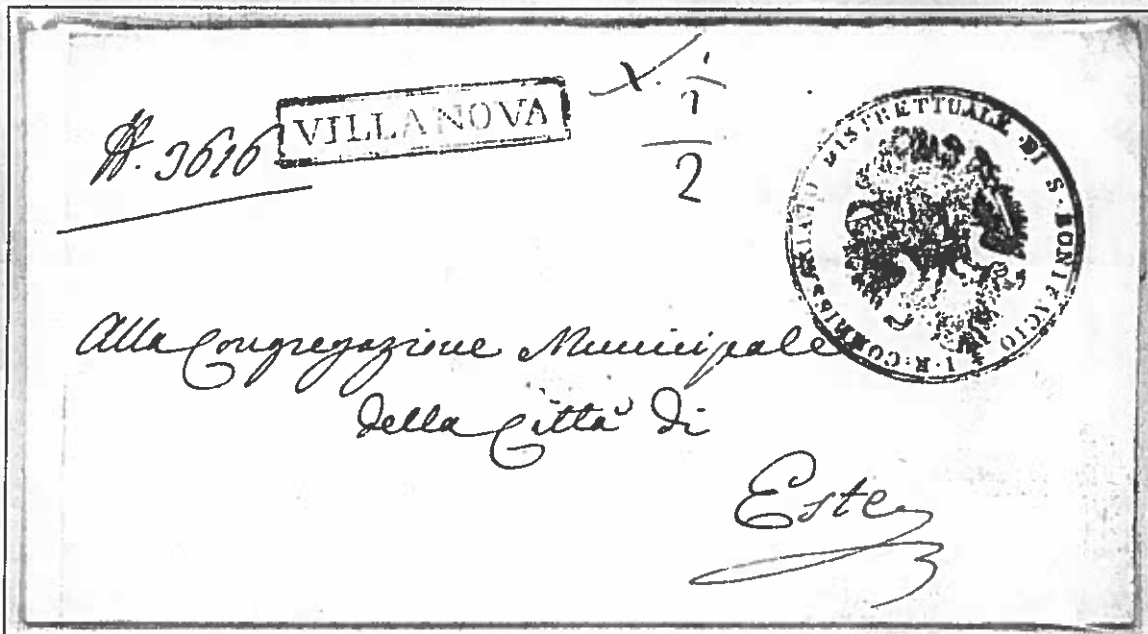 N. 3616
VILLANOVA
1
2
I. R. COMMISSARIATO DISTRETTUALE DI S. BONIFACIO
Alla Congregazione Municipale
della Città di
Este